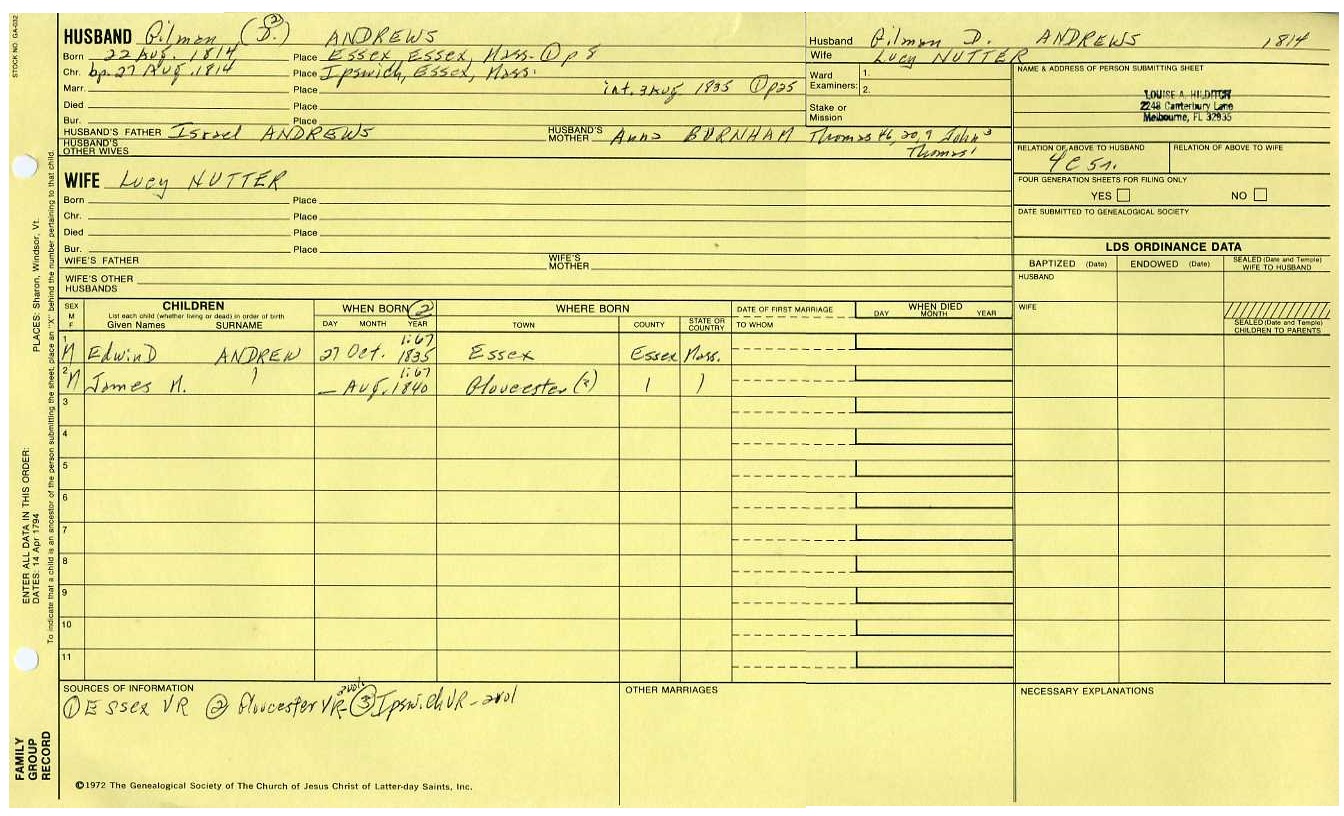 STOCK NO. GA-032
HUSBAND Gilman (D.) ② ANDREWS
Born 22 Aug. 1814 Place Essex, Essex, Mass. ① p 8
Chr. bp. 27 Aug 1814 Place Ipswich, Essex, Mass.
Marr. Place int. 3 Aug 1835 ① p25
Died Place
Bur. Place
HUSBAND'S FATHER Israel ANDREWS HUSBAND'S MOTHER Anna BURNHAM
HUSBAND'S OTHER WIVES
Husband Gilman D. ANDREWS 1814
Wife Lucy NUTTER
Ward Examiners: 1.
2.
Stake or Mission
Thomas 46, 20, 9 John 3
Thomas 1
NAME & ADDRESS OF PERSON SUBMITTING SHEET
LOUISE A. HILDITCH
2248 Canterbury Lane
Melbourne, FL 32935
RELATION OF ABOVE TO HUSBAND RELATION OF ABOVE TO WIFE
4C 5r.
FOUR GENERATION SHEETS FOR FILING ONLY
YES NO
DATE SUBMITTED TO GENEALOGICAL SOCIETY
WIFE Lucy NUTTER
Born Place
Chr. Place
Died Place
Bur. Place
WIFE'S FATHER WIFE'S MOTHER
WIFE'S OTHER HUSBANDS
LDS ORDINANCE DATA
BAPTIZED (Date) ENDOWED (Date) SEALED (Date and Temple) WIFE TO HUSBAND
HUSBAND
WIFE
SEALED (Date and Temple) CHILDREN TO PARENTS
SEX M F
CHILDREN
List each child (whether living or dead) in order of birth
Given Names SURNAME
WHEN BORN ②
DAY MONTH YEAR
WHERE BORN
TOWN COUNTY STATE OR COUNTRY
DATE OF FIRST MARRIAGE
TO WHOM
WHEN DIED
DAY MONTH YEAR
1 M Edwin D ANDREW 27 Oct. 1:67 1835 Essex Essex Mass.
2 M James M. ) — Aug. 1:67 1840 Gloucester (2) ( )
3
4
5
6
7
8
9
10
11
SOURCES OF INFORMATION
① Essex VR ② Gloucester VR- 2 vol ③ Ipswich VR - 2 vol
OTHER MARRIAGES
NECESSARY EXPLANATIONS
©1972 The Genealogical Society of The Church of Jesus Christ of Latter-day Saints, Inc.
FAMILY GROUP RECORD
ENTER ALL DATA IN THIS ORDER:
DATES: 14 Apr 1794
PLACES: Sharon, Windsor, Vt.
To indicate that a child is an ancestor of the person submitting the sheet, place an "X" behind the number pertaining to that child.